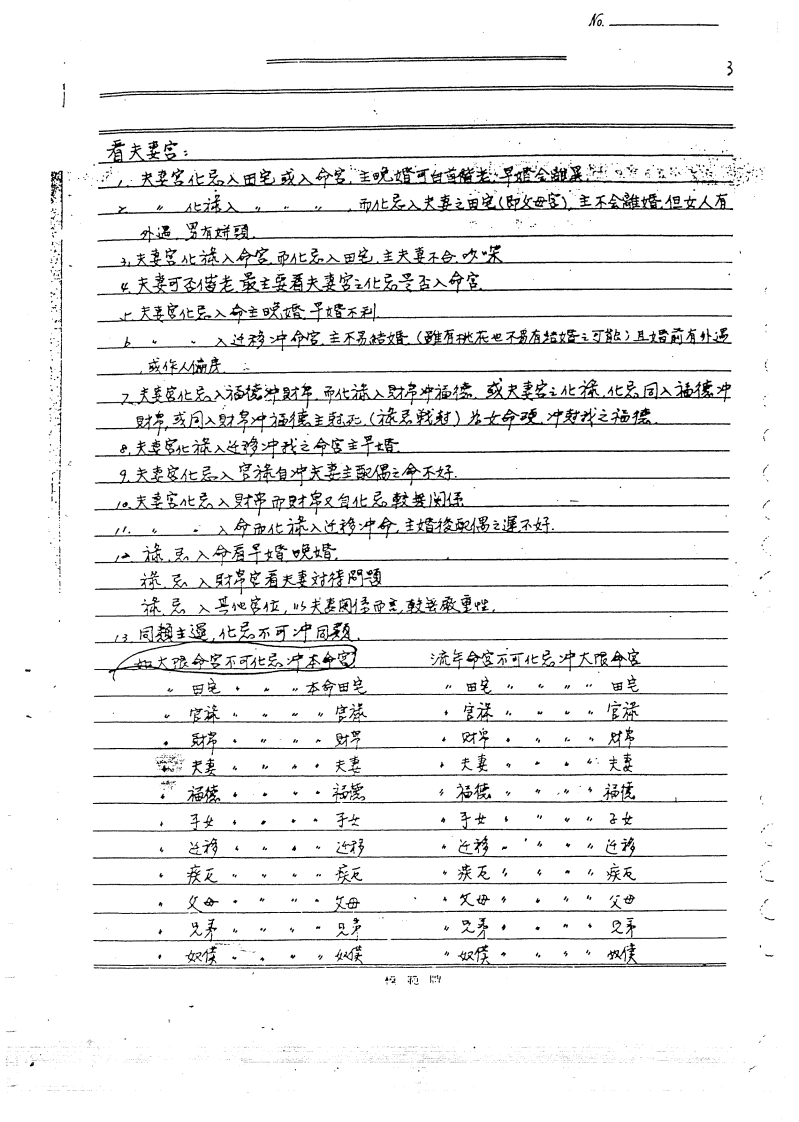 No.
3
看夫妻宮:
1. 夫妻宮化忌入田宅或入命宮,主晚婚可白首偕老,早婚会離異
2. 〃 化祿入 〃 〃 〃 ,而化忌入夫妻之田宅(即父母宮),主不会離婚,但女人有
外遇,男有姘頭.
3. 夫妻宮化祿入命宮,而化忌入田宅,主夫妻不合
4. 夫妻可否偕老,最主要看夫妻宮之化忌是否入命宮.
5. 夫妻宮化忌入命主晚婚,早婚不利.
6. 〃 〃 入迁移冲命宮,主不易結婚.(雖有桃花也不易有結婚之可能)且婚前有外遇
,或作人偏房.
7. 夫妻宮化忌入福德冲財帛,而化祿入財帛冲福德,或夫妻宮之化祿,化忌同入福德冲
財帛,或同入財帛冲福德主尅死,(祿忌戰尅)為女命硬,冲尅我之福德.
8. 夫妻宮化祿入迁移冲我之命宮主早婚.
9. 夫妻宮化忌入官祿自冲夫妻主配偶之命不好.
10. 夫妻宮化忌入財帛而財帛又自化忌較無関係
11. 〃 〃 入命而化祿入迁移冲命,主婚後配偶之運不好.
12. 祿,忌入命看早婚,晚婚.
祿,忌入財帛宮看夫妻对待問題
祿,忌入其他宮位,以夫妻関係而言,較無嚴重性.
13. 同類主運,化忌不可冲同類.
如大限命宮不可化忌冲本命宮 流年命宮不可化忌冲大限命宮
〃 田宅 〃 〃 〃 本命田宅 〃 田宅 〃 〃 〃 〃 田宅
〃 官祿 〃 〃 〃 〃 官祿 〃 官祿 〃 〃 〃 〃 官祿
〃 財帛 〃 〃 〃 〃 財帛 〃 財帛 〃 〃 〃 〃 財帛
〃 夫妻 〃 〃 〃 〃 夫妻 〃 夫妻 〃 〃 〃 〃 夫妻
〃 福德 〃 〃 〃 〃 福德 〃 福德 〃 〃 〃 〃 福德
〃 子女 〃 〃 〃 〃 子女 〃 子女 〃 〃 〃 〃 子女
〃 迁移 〃 〃 〃 〃 迁移 〃 迁移 〃 〃 〃 〃 迁移
〃 疾厄 〃 〃 〃 〃 疾厄 〃 疾厄 〃 〃 〃 〃 疾厄
〃 父母 〃 〃 〃 〃 父母 〃 父母 〃 〃 〃 〃 父母
〃 兄弟 〃 〃 〃 〃 兄弟 〃 兄弟 〃 〃 〃 〃 兄弟
〃 奴僕 〃 〃 〃 〃 奴僕 〃 奴僕 〃 〃 〃 〃 奴僕